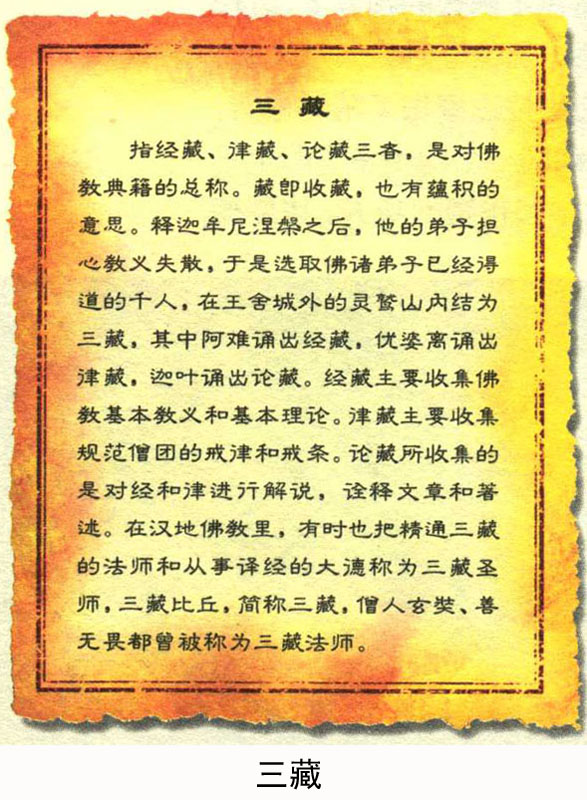 三藏
指经藏、律藏、论藏三者，是对佛
教典籍的总称。藏即收藏，也有蕴积的
意思。释迦牟尼涅槃之后，他的弟子担
心教义失散，于是选取佛诸弟子已经得
道的千人，在王舍城外的灵鹫山内结为
三藏，其中阿难诵出经藏，优婆离诵出
律藏，迦叶诵出论藏。经藏主要收集佛
教基本教义和基本理论。律藏主要收集
规范僧团的戒律和戒条。论藏所收集的
是对经和律进行解说，诠释文章和著
述。在汉地佛教里，有时也把精通三藏
的法师和从事译经的大德称为三藏圣
师，三藏比丘，简称三藏，僧人玄奘、善
无畏都曾被称为三藏法师。
三藏